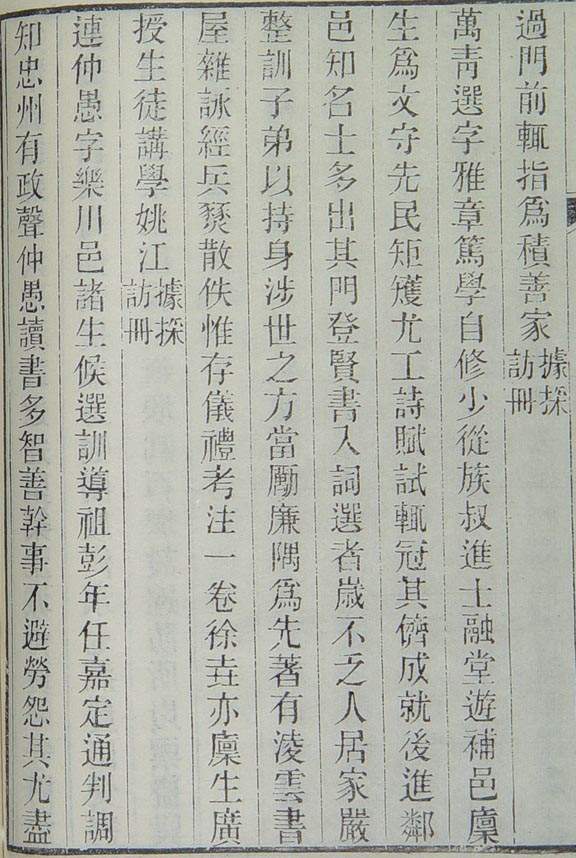 過門前輒指爲積善家據採訪冊
萬青選字雅章篤學自修少從族叔進士融堂遊補邑廩
生爲文守先民矩矱尤工詩賦試輒冠其儕成就後進鄰
邑知名士多出其門登賢書入詞選者歲不乏人居家嚴
整訓子弟以持身涉世之方當勵廉隅爲先著有淩雲書
屋雜詠經兵燹散佚惟存儀禮考注一卷徐垚亦廩生廣
授生徒講學姚江據採訪冊
連仲愚字樂川邑諸生候選訓導祖彭年任嘉定通判調
知忠州有政聲仲愚讀書多智善幹事不避勞怨其尤盡